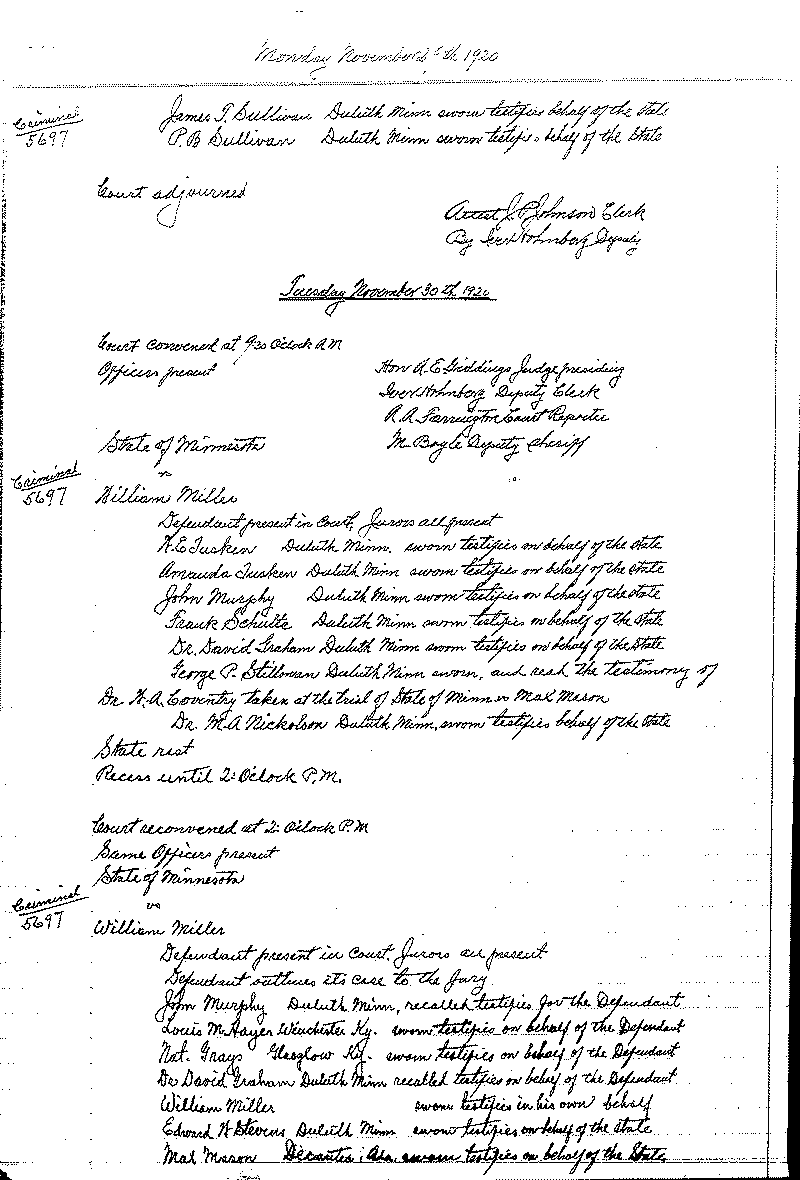 Monday November 29th 1920
Criminal
5697
James T. Sullivan Duluth Minn sworn testifies behalf of the State
P.B Sullivan Duluth Minn sworn testifies behalf of the State
Court adjourned
Attest J.P. Johnson Clerk
By Iver Hohnberg Deputy
Tuesday November 30th 1920
Court convened at 9:30 O'clock A M
Officers present Hon Giddings Judge presiding
Iver Hohnberg Deputy Clerk
R.A. Farrington Court Reporter
State of Minnesota M Boyle Deputy Sheriff
vs
Criminal
5697
William Miller
Defendant present in Court, Jurors all present
Tusken Duluth Minn. sworn testifies on behalf of the State
Amanda Tusken Duluth Minn sworn testifies on behalf of the State
John Murphy Duluth Minn sworn testifies on behalf of the State
Frank Schulte Duluth Minn sworn testifies on behalf of the State
Dr. David Graham Duluth Minn sworn testifies on behalf of the State
George P. Stillman Duluth Minn sworn, and read the testimony of
Dr. W.A. Coventry taken at the trial of State of Minn vs Max Mason
Dr. M.A Nickolson Duluth Minn, sworn testifies behalf of the State
State rest
Recess until 2: O'clock P.M.
Court reconvened at 2: O'clock P.M
Same Officers present
State of Minnesota
vs
Criminal
5697
William Miller
Defendant present in Court, Jurors all present
Defendant outlines its case to the Jury
John Murphy Duluth Minn, recalled testifies for the Defendant
Louis M. Hayer Winchester Ky. sworn testifies on behalf of the Defendant
Nat. Grays Glasglow Ky. sworn testifies on behalf of the Defendant
Dr David Graham Duluth Minn recalled testifies on behalf of the Defendant
William Miller sworn testifies in his own behalf
Edward H Stevens Duluth Minn sworn testifies on behalf of the State
Max Mason Decanter, Ala, sworn testifies on behalf of the State